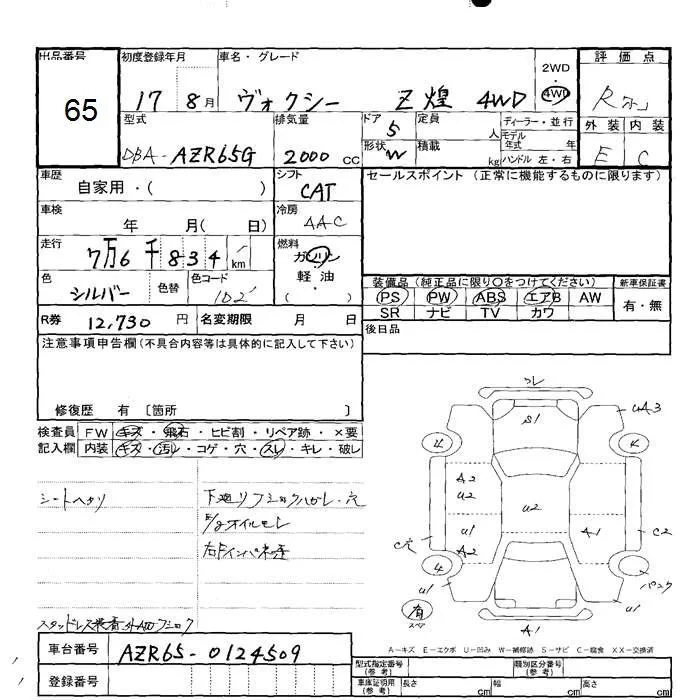 出品番号 初度登録年月 車名・グレード 2WD 評価点
65 17 8月 ヴォクシー Z煌 4WD 4WD R
型式 排気量 ドア 5 定員 人 ディーラー・並行 外装 内装
DBA-AZR65G 2000 CC 形状 W 積載 kg モデル年式 年 ハンドル 左・右 E C
車歴 自家用・( ) シフト CAT セールスポイント (正常に機能するものに限ります)
車検 年 月( 日) 冷房 AAC
走行 7万6千834 km 燃料 ガソリン
軽油
・( )
色 シルバー 色替 色コード 1D2 装備品 (純正品に限り○をつけてください) 新車保証書
PS PW ABS エアB AW 有・無
SR ナビ TV カワ
R券 12,730 円 名変期限 月 日 後日品
注意事項申告欄(不具合内容等は具体的に記入して下さい)
修復歴 有 〔箇所 〕
検査員 FW キズ・飛石・ヒビ割・リペア跡・×要
記入欄 内装 キズ・汚レ・コゲ・穴・スレ・キレ・破レ
シートヘタリ
下廻リフショクハガレ・穴
E/gオイルモレ
スタッドレス
車台番号 AZR65-0124509
登録番号
ズレ
S1
UA3
A2
U2
U2
U1
A2
A1
C2
C穴
4
パンク
U1
U1
有
スペア
A1
A-キズ E-エクボ U-凹み W-補修跡 S-サビ C-腐食 XX-交換済
型式指定番号(参考) 類別区分番号(参考)
車庫証明用(参考) 長さ cm 幅 cm 高さ cm